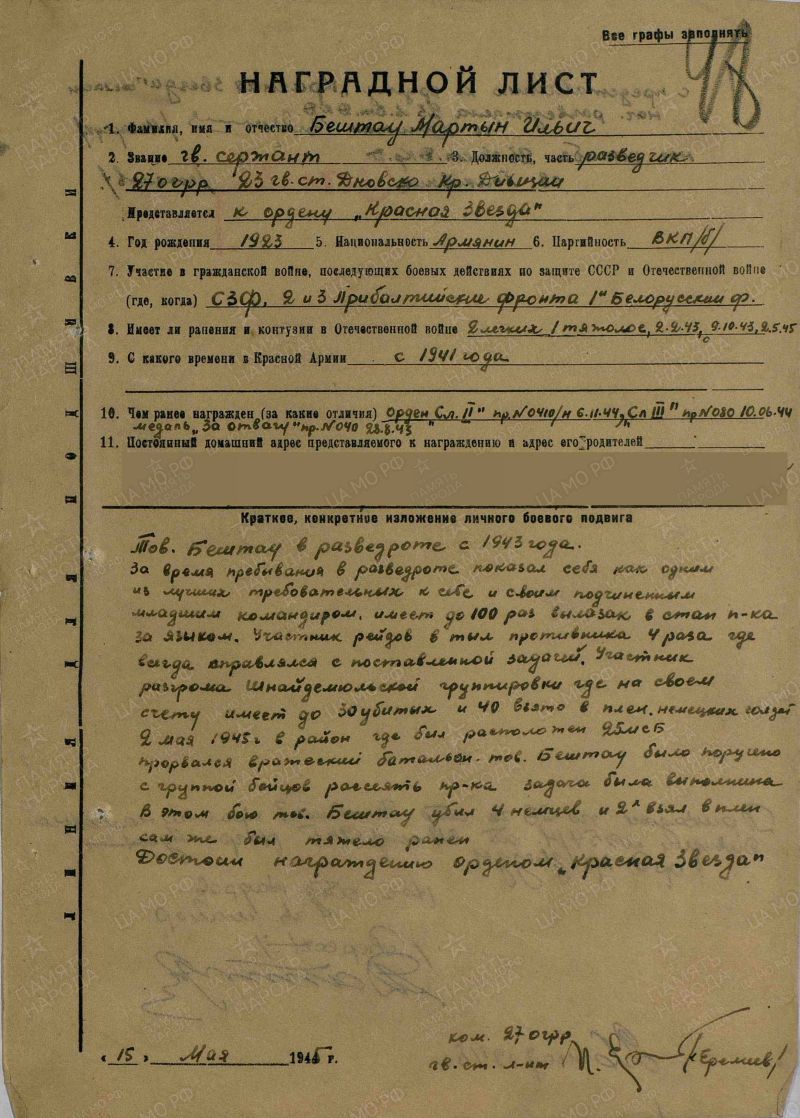 Все графы заполнять
48
НАГРАДНОЙ ЛИСТ
1. Фамилия, имя и отчество Бештау Мартын Ильич
2. Звание гв. сержант 3. Должность, часть разведчик
27 огрр 23 гв. ст. Дновско Кр. Дивизии
Представляется к ордену „Красная Звезда"
4. Год рождения 1923 5. Национальность Армянин 6. Партийность ВКП/б/
7. Участие в гражданской войне, последующих боевых действиях по защите СССР и Отечественной войне
(где, когда) СЗФ, 2 и 3 Прибалтийские фронта 1й Белорусский ф.
8. Имеет ли ранения и контузии в Отечественной войне 2 легких 1 тяжолое, 2.2.43, 9.10.43, 2.5.45
9. С какого времени в Красной Армии с 1941 года
10. Чем ранее награжден (за какие отличия) Орден Сл. II" пр. №0410/н 6.11.44, Сл III" пр №080 10.06.44
медаль „За отвагу" пр. №040 28.8.43
11. Постоянный домашний адрес представляемого к награждению и адрес его родителей
Краткое, конкретное изложение личного боевого подвига
Тов. Бештау в разведроте с 1943 года.
За время пребывания в разведроте показал себя как одним
из лучших требовательных к себе и своим подчиненным
младшим командиром, имеет до 100 раз вылазак в стан п-ка
за языком. Участник рейдов в тыл противника 4 раза где
всегда вправлялся с поставленной задачей. Участник
разгрома Шнайдемюльской группировки где на своем
счету имеет до 30 убитых и 40 взято в плен. немецких солдат
2 мая 1945 г в район где был расположен 25 мсб
прорвался вражеский батальон. тов. Бештау было поручено
с группой бойцов рассеять пр-ка задача была выполнина
В этом бою тов. Бештау убил 4 немцев и 2х взял в плен
сам же был тяжело ранен
Достоин награждению орденом „Красная Звезда"
ком. 27 огрр
« 15 » Мая 1945 г. гв. ст. л-нт /Еремеев/